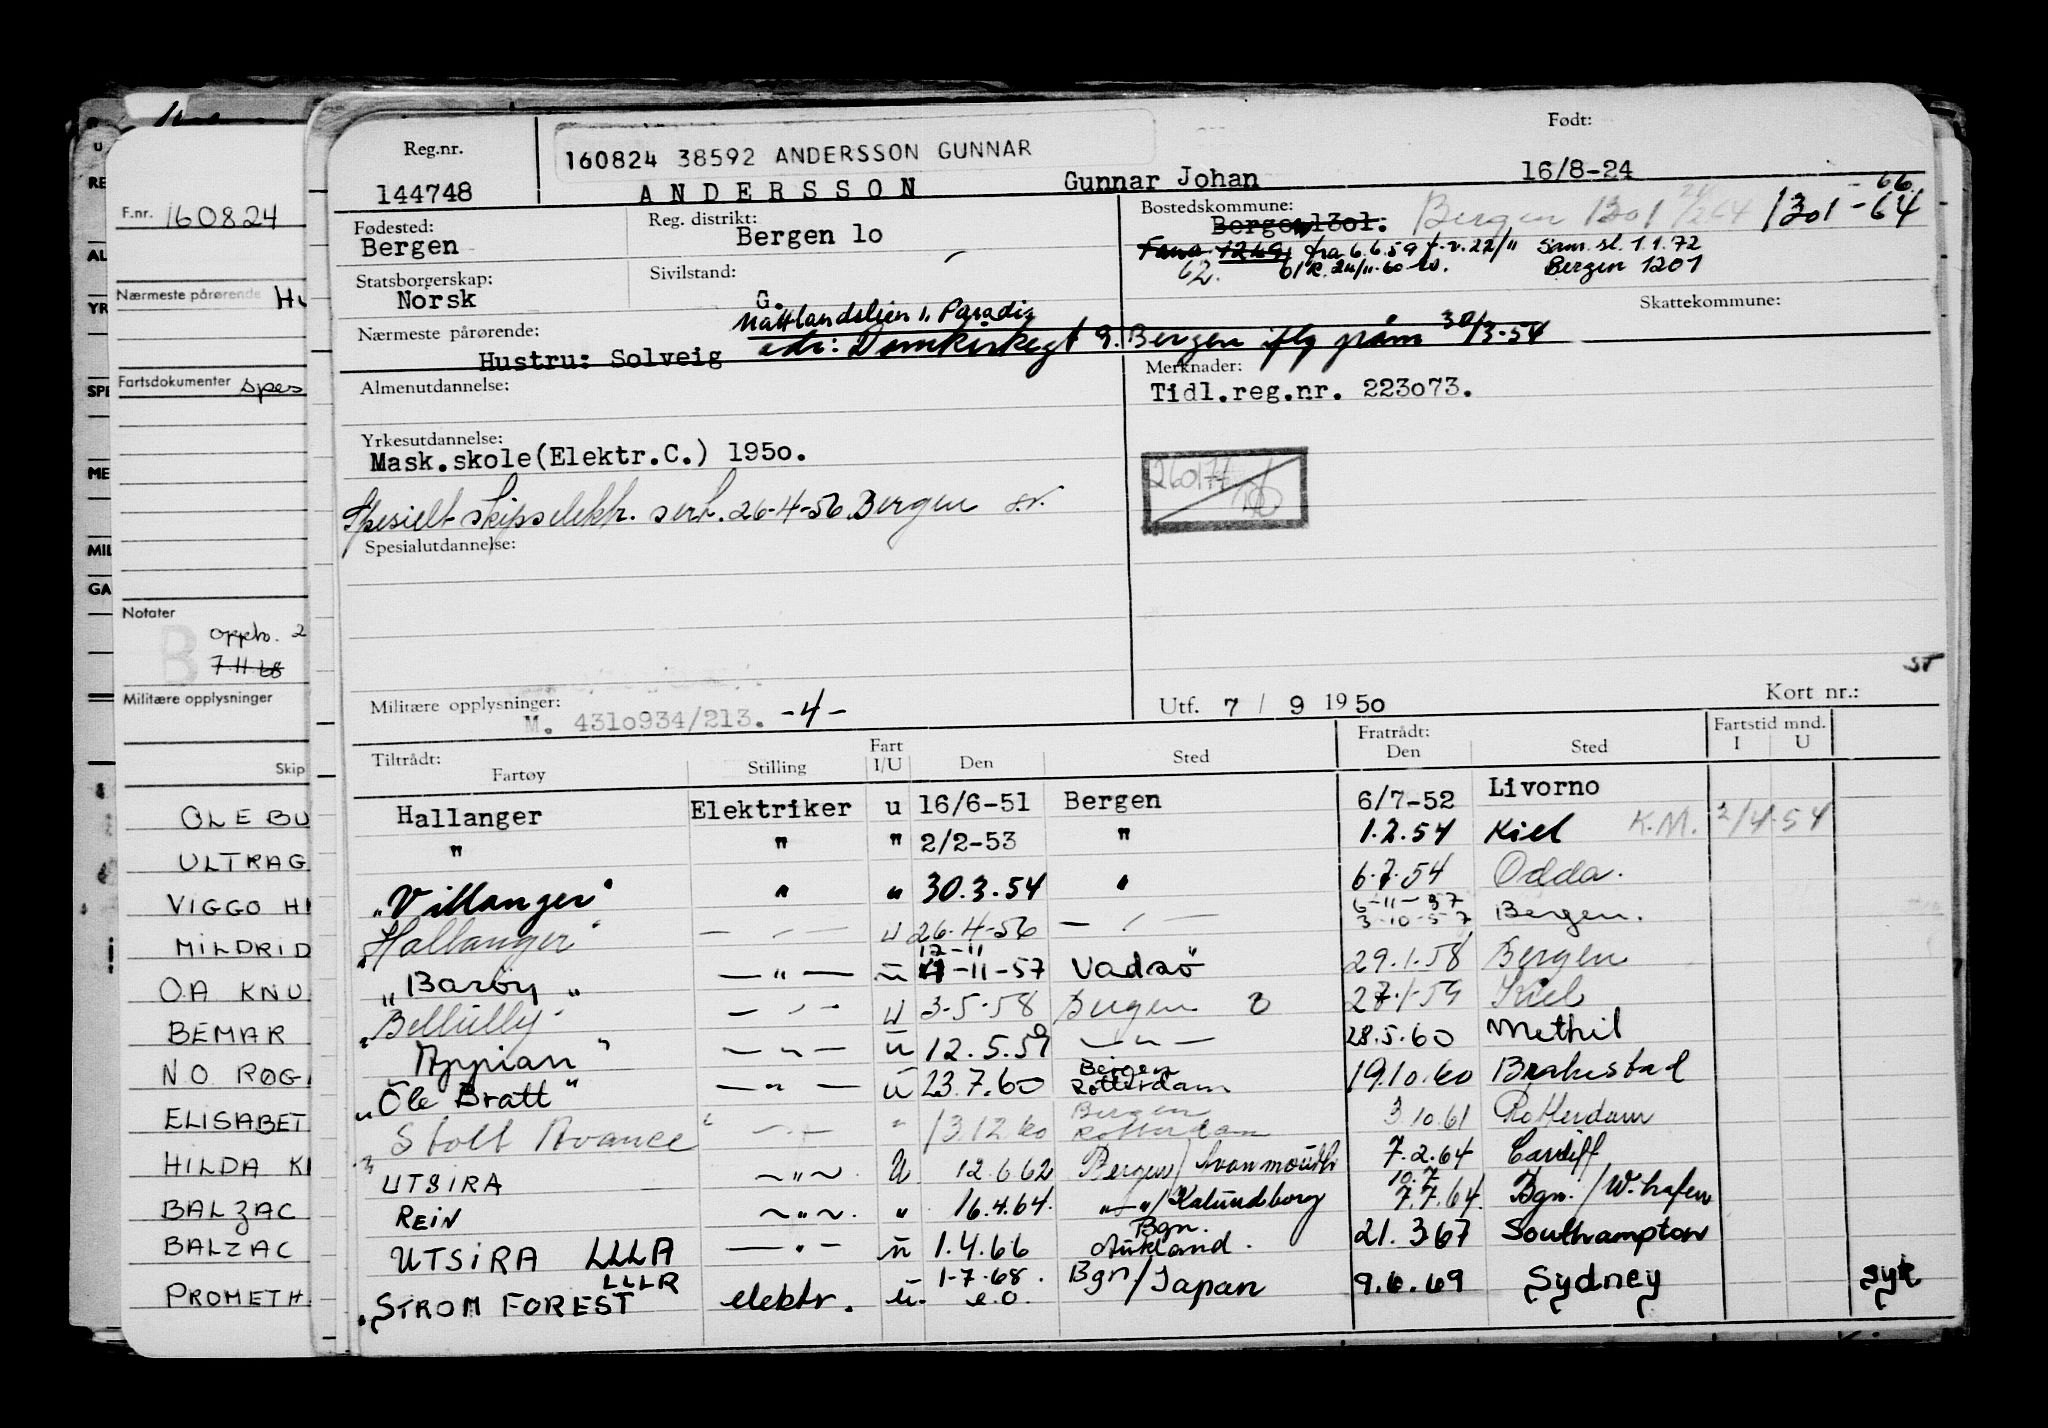 Reg.nr.
160824 38592 ANDERSSON GUNNAR
Født:
144748 ANDERSSON Gunnar Johan 16/8-24
Fødested: Bergen
Reg. distrikt: Bergen 1o
Bostedskommune: Bergen 13o1. Bergen 1301 1301-64
66.
Fana 1249 fra 6.6.59 f.v. 22/11 Sam. sl. 1.1.72
62. Bergen 1201
Statsborgerskap: Norsk
Sivilstand: G.
Skattekommune:
Nattlandslien 1, Paradis
Nærmeste pårørende:
Hustru: Solveig adr: Domkirkegt 9. Bergen iflg 30/3-54
Almenutdannelse:
Merknader:
Tidl.reg.nr. 223o73.
Yrkesutdannelse:
Mask.skole(Elektr.C.) 195o.
Spesielt skipselektr. sert. 26-4-56 Bergen
Spesialutdannelse:
ST
Militære opplysninger: M. 431o934/213. -4-
Utf. 7 / 9 1950
Kort nr.:
Tiltrådt:
Fartøy Stilling Fart I/U Den Sted
Fratrådt:
Den Sted
Fartstid mnd.
I U
Hallanger Elektriker u 16/6-51 Bergen 6/7-52 Livorno
" " " 2/2-53 " 1.2.54 Kiel K.M. 2/4.54
"Villanger" " " 30.3.54 " 6.7.54 Odda.
"Hallanger" — " — u 26-4-56 — " — 6-11-57 3-10-57 Bergen.
"Barøy" — " — u 12-11 -11-57 Vadsø 29.1.58 Bergen
— " — u 3-5-58 Bergen 27-1-59 Kiel
"Appian" — " — u 12.5.59 — " — 28.5.60 Methil
"Ole Bratt" — " — u 23.7.60 Bergen Rotterdam 19.10.60 Brahestad
"Stolt Avance" — " — " 13.12.60 Bergen Rotterdam 3.10.61 Rotterdam
UTSIRA — " — U 12.6.62 Bergen/Avonmouth 7.2.64 Cardiff
REIN — " — " 16.4.64. — " —/Kalundborg 10.7 7.7.64. Bgn./W.hafen
UTSIRA LLLA — " — u 1.4.66 Bgn. Aukland. 21.3.67 Southampton
"STROM FOREST LLLR elektr. u. 1-7-68. e.o. Bgn/Japan 9.6.69 Sydney syk
F.nr. 160824
Nærmeste pårørende
Fartsdokumenter spes
Notater
B
oppb. 2
7.11.68
Militære opplysninger
Skip
OLE BU
ULTRAG
VIGGO H
MILDRID
O.A KNU
BEMAR
NO ROG
ELISABET
HILDA K
BALZAC
BALZAC
PROMETH
RE
AL
YR
SPE
ME
MIL
GA